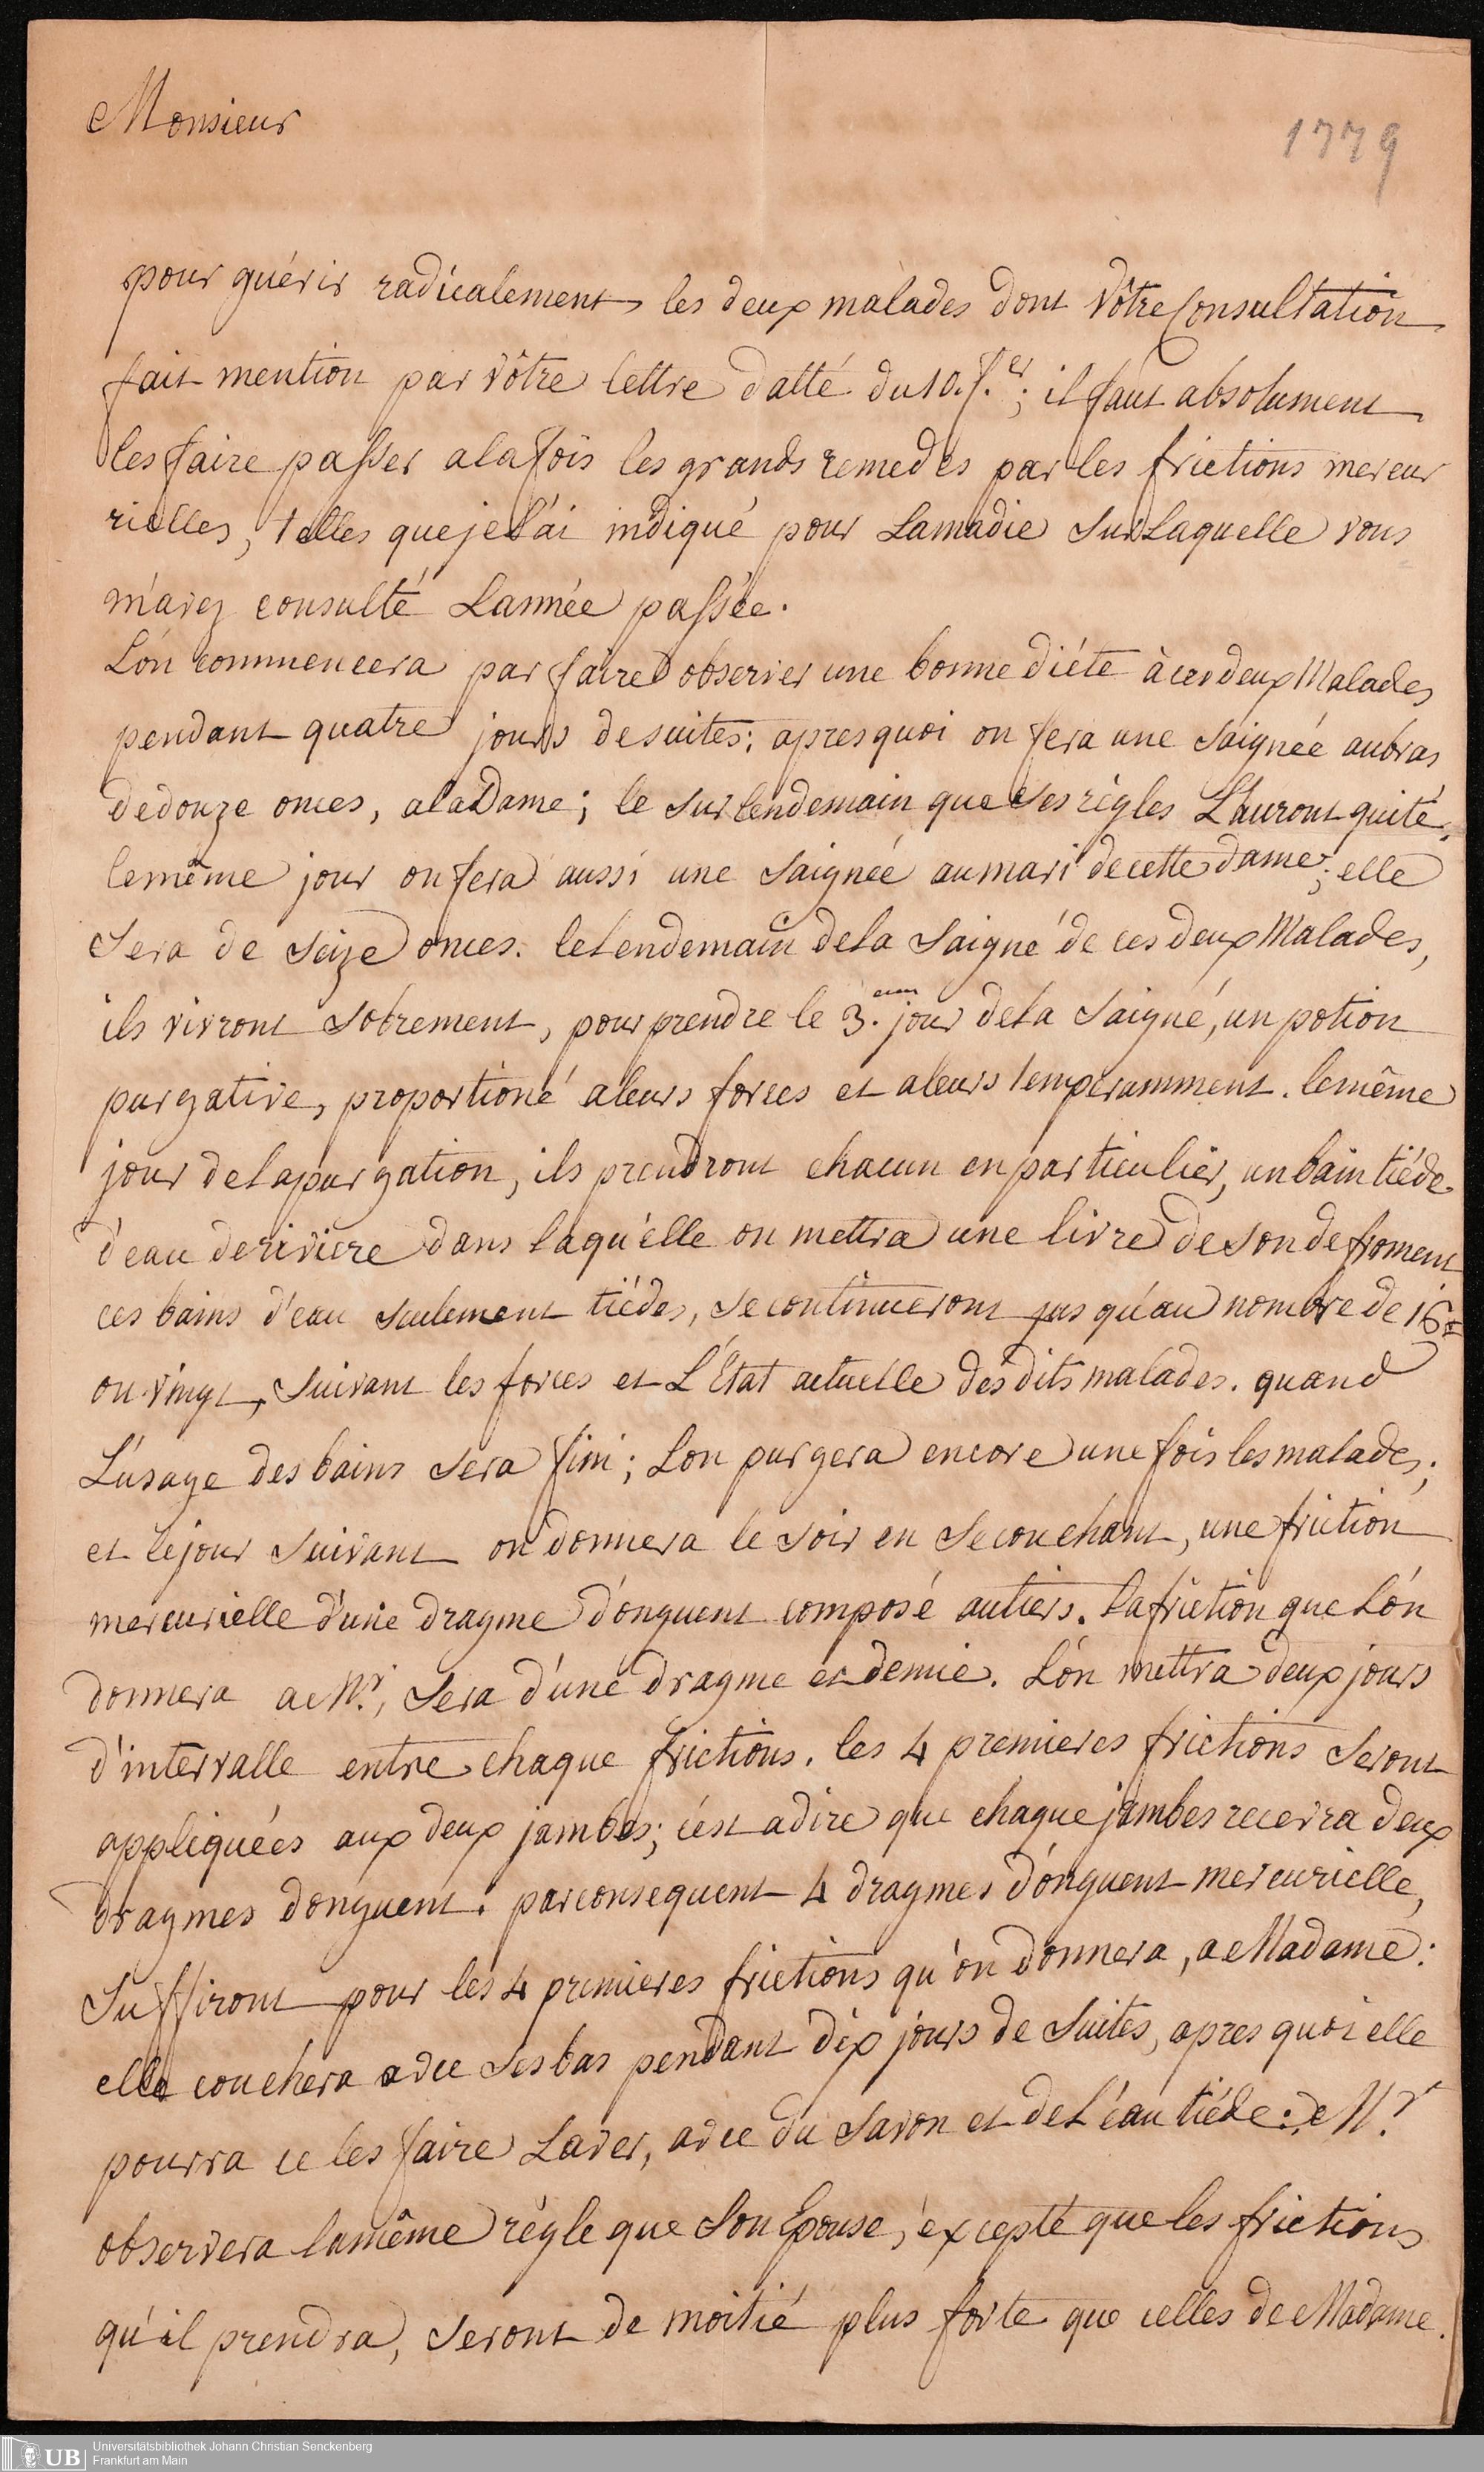 Monsieur
1779
pour guérir radicalement les deux malades dont vôtre Consultation
fait mention par vôtre lettre datté du 10. f.er; il faut absolument
les faire passer a la fois les grands remedes par les frictions mercur
rielles, telles que je l'ai indiqué pour Lamadie sur Laquelle vous
m'avez consulté L'année passée.
L'on commencera par faire observer une bonne diéte à ces deux Malades
pendant quatre jours de suites; apres quoi on fera une saignée au bras
de douze onces, a la Dame; le surlendemain que ses règles L'auront quité,
le même jour on fera aussi une saignée au mari de cette dame; elle
sera de seize onces. le Lendemain de la saigné de ces deux Malades,
ils vivront sobrement, pour prendre le 3.eme jour de la saigné, un potion
purgative, proportioné a leurs forces et a leurs temperamment. le même
jour de la purgation, ils prendront chacun en particulier, un bain tiéde
d'eau de riviere dans laqu'elle on mettra une livre de son de froment
ces bains d'eau seulement tiédes, se continueront jus qu'au nombre de 16
ou vingt, suivant les forces et L'État actuelle des dits malades. quand
L'usage des bains sera fini; L'on purgera encore une fois les malades;
et le jour suivant on donnera le soir en se couchant, une friction
mercurielle d'une dragme d'onguent composé au tiers. la friction que L'on
donnera a Mr., sera d'une dragme et demie. L'on mettra deux jours
d'intervalle entre chaque frictions. les 4 premieres frictions seront
appliquées aux deux jambes; c'est a dire que chaque jambes recevra deux
dragmes d'onguent. par consequent 4 dragmes d'onguent mercurielle,
suffiront pour les 4 premieres frictions qu'on donnera, a Madame:
elle couchera avec ses bas pendant dix jours de suites, apres quoi elle
pourra ce les faire Laver, avec du savon et de L'éau tiéde: Mr.
observera la même régle que son Epouse, éxcepté que les frictions
qu'il prendra, seront de moitié plus forte que celles de Madame.
UB Universitätsbibliothek Johann Christian Senckenberg
Frankfurt am Main